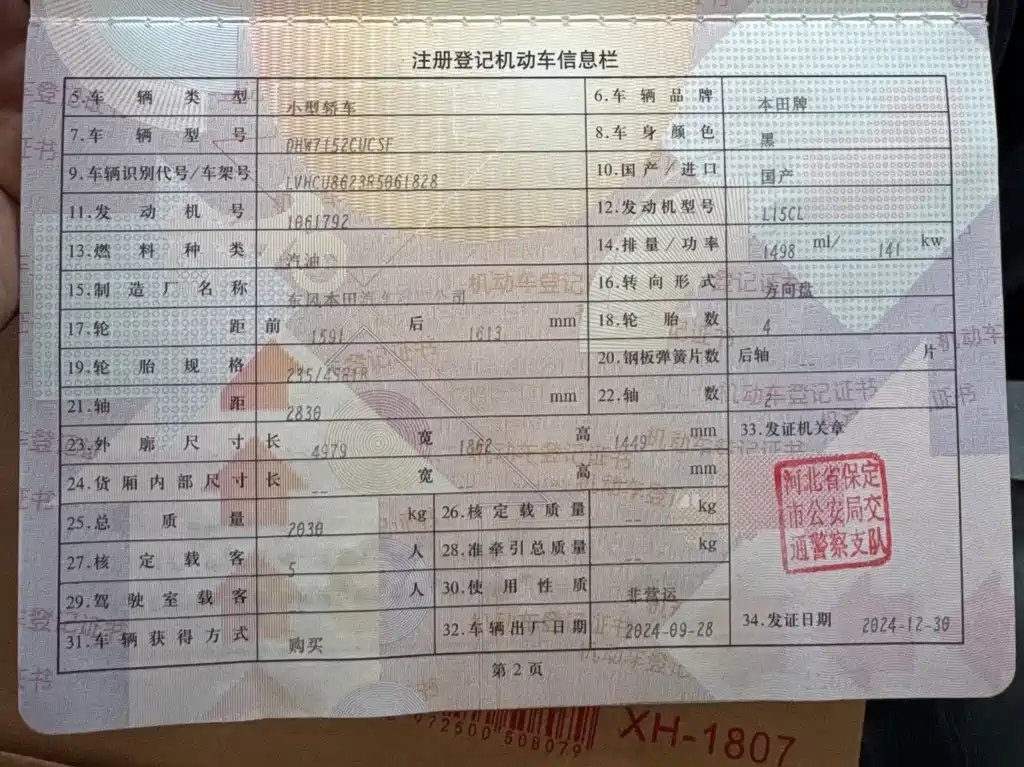 注册登记机动车信息栏
5.车辆类型 小型轿车 6.车辆品牌 本田牌
7.车辆型号 DHW7152CUCSF 8.车身颜色 黑
9.车辆识别代号/车架号 LVHCU8623R5061828 10.国产/进口 国产
11.发动机号 1061792 12.发动机型号 L15CL
13.燃料种类 汽油 14.排量/功率 1498 ml/ 141 kw
15.制造厂名称 东风本田汽车 公司 16.转向形式 方向盘
17.轮距 前 1591 后 1613 mm 18.轮胎数 4
19.轮胎规格 235/45R18 20.钢板弹簧片数 后轴 -- 片
21.轴距 2830 mm 22.轴数 2
23.外廓尺寸 长 4979 宽 1862 高 1449 mm 33.发证机关章
24.货厢内部尺寸 长 -- 宽 -- 高 -- mm
河北省保定
市公安局交
通警察支队
25.总质量 2030 kg 26.核定载质量 -- kg
27.核定载客 5 人 28.准牵引总质量 -- kg
29.驾驶室载客 -- 人 30.使用性质 非营运
31.车辆获得方式 购买 32.车辆出厂日期 2024-09-28 34.发证日期 2024-12-30
第2页
972500 508079
XH-1807